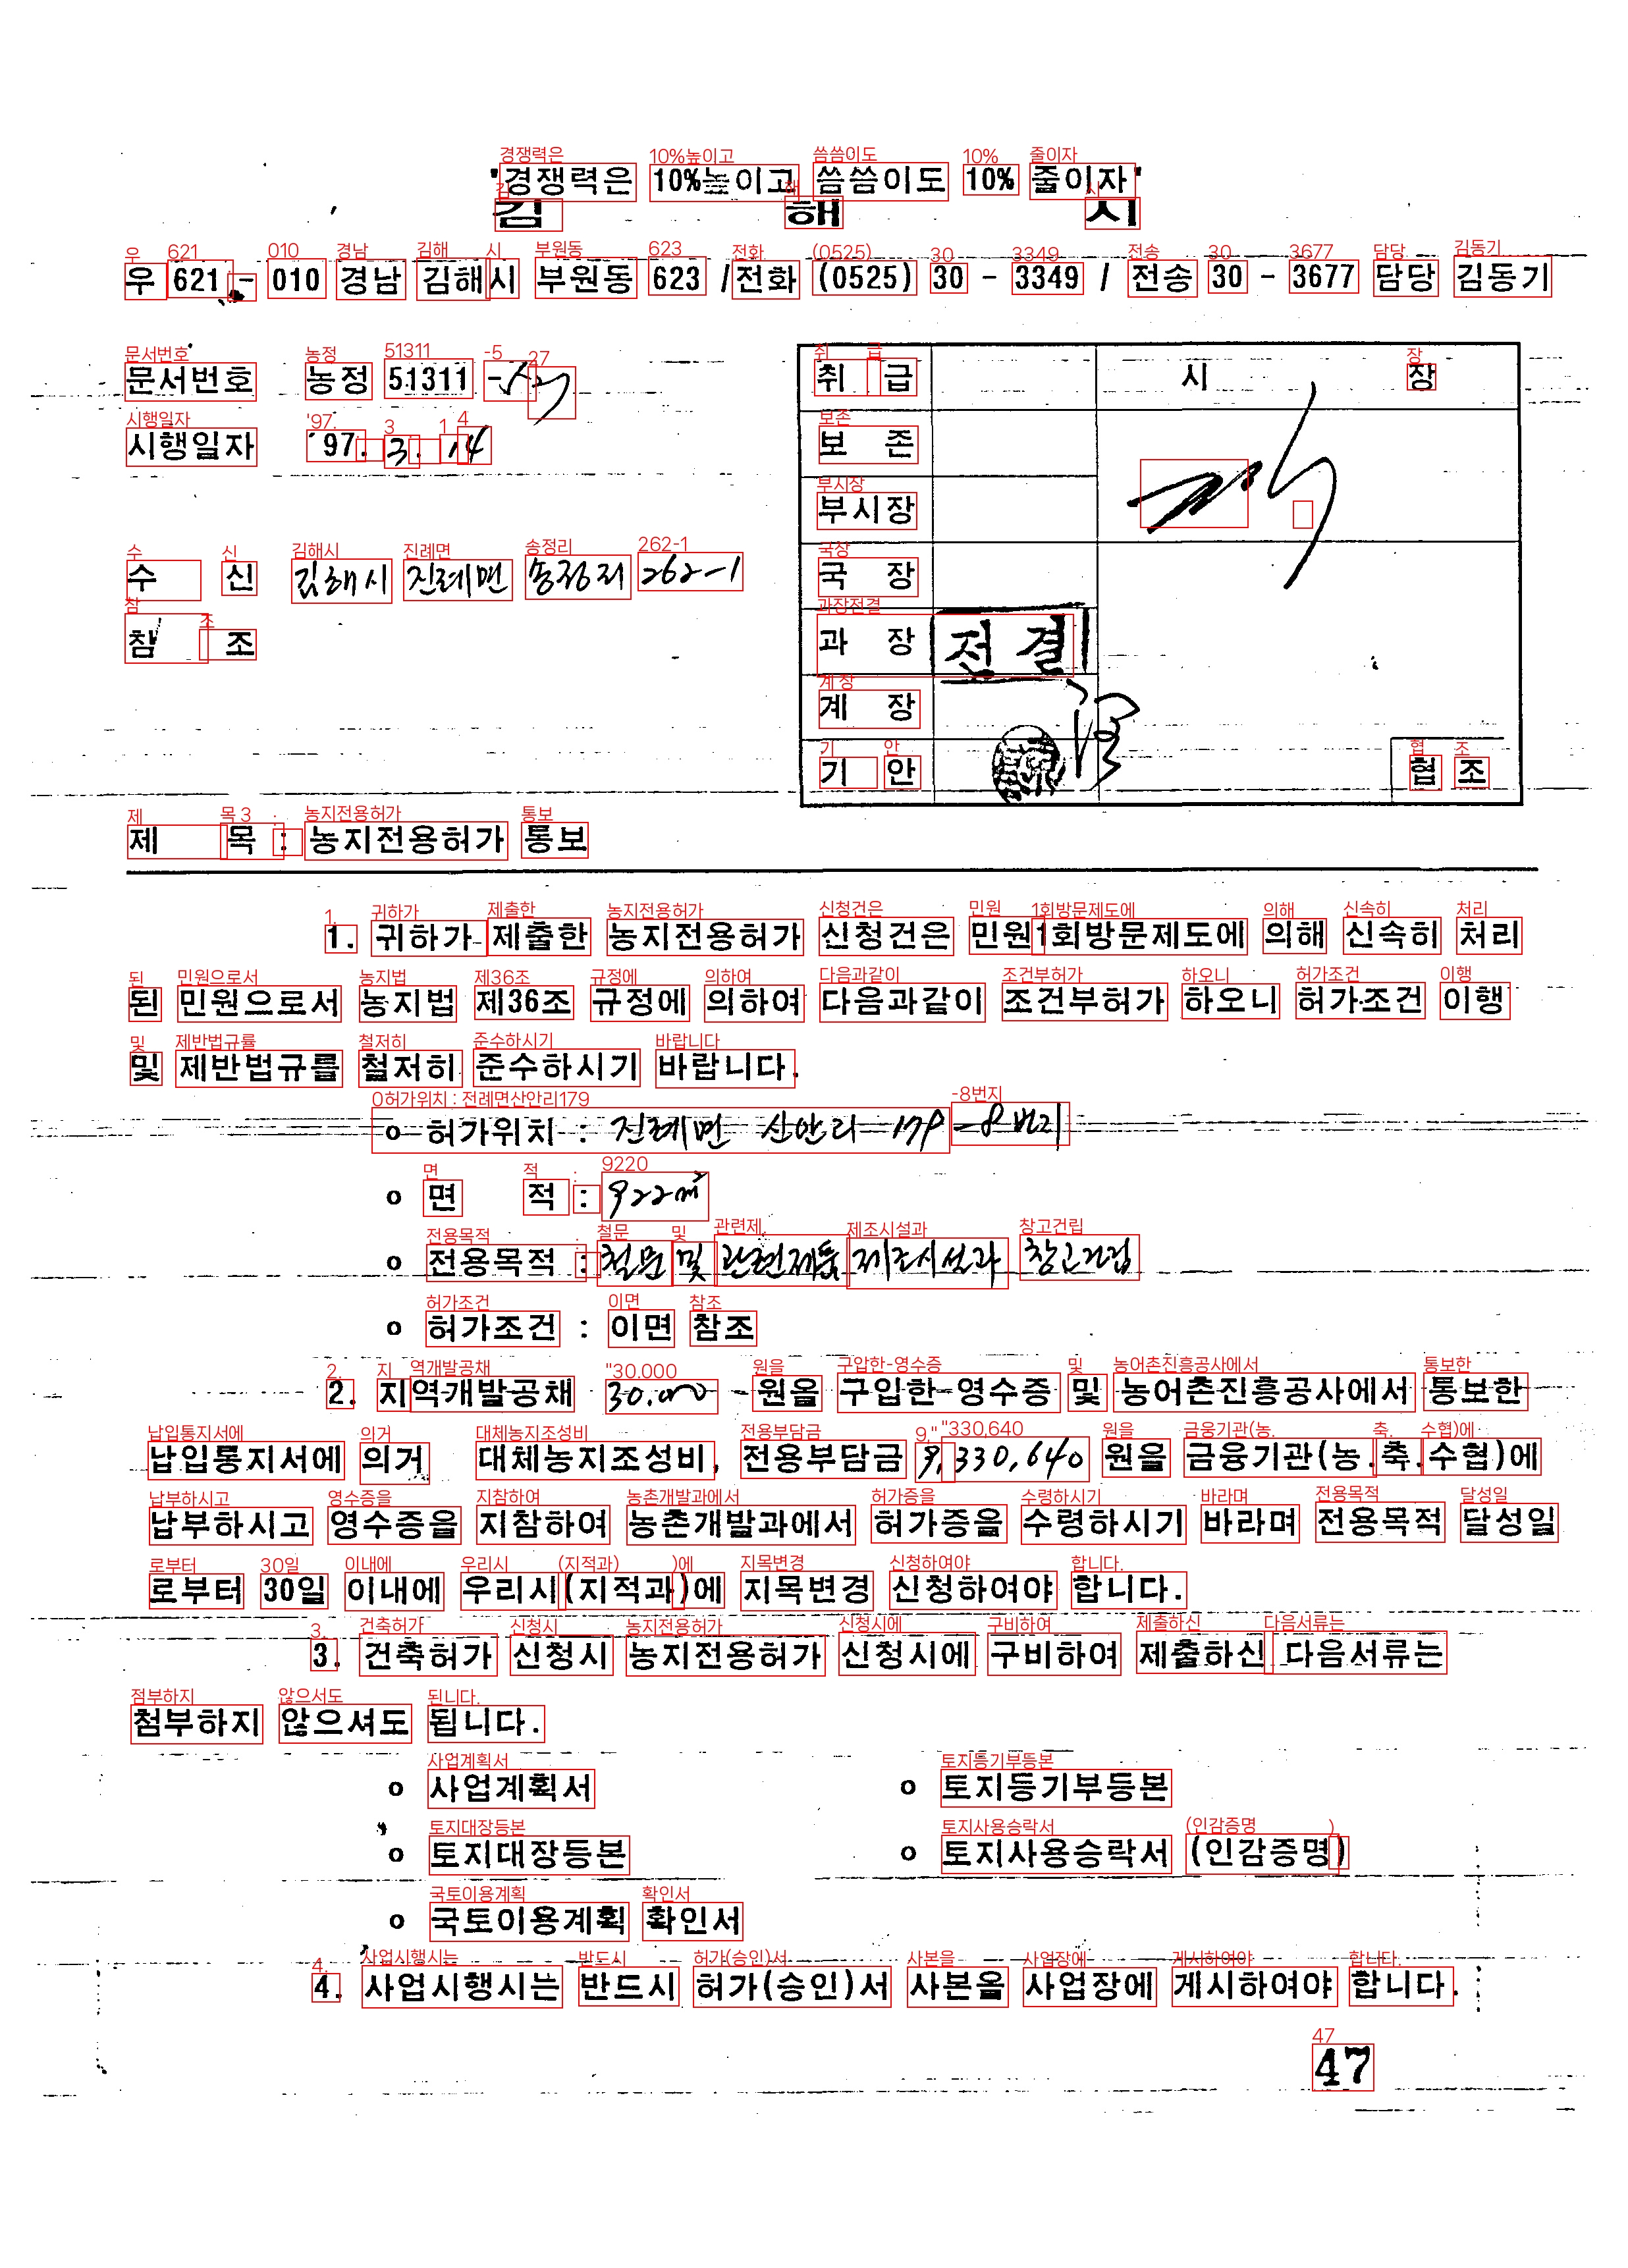 '경쟁력은 10%높이고 씀씀이도 10% 줄이자'
김 해 시
우 621 - 010 경남 김해시 부원동 623 /전화 (0525) 30 - 3349 / 전송 30 - 3677 담당 김동기
문서번호 농정 51311 -
시행일자 '97. 3. 14
수 신 김해시 진례면 송정리 262-1
참 조
취 급 시 장
보 존
부시장
국 장
과 장 전결
계 장
기 안 협 조
제 목 : 농지전용허가 통보
1. 귀하가 제출한 농지전용허가 신청건은 민원1회방문제도에 의해 신속히 처리
된 민원으로서 농지법 제36조 규정에 의하여 다음과같이 조건부허가 하오니 허가조건 이행
및 제반법규를 철저히 준수하시기 바랍니다.
o 허가위치 : 진례면 산안리 179-8번지
o 면 적 : 922㎡
o 전용목적 : 철문 및 관련제품 제조시설과 창고건립
o 허가조건 : 이면 참조
2. 지역개발공채 30.000 원을 구입한 영수증 및 농어촌진흥공사에서 통보한
납입통지서에 의거 대체농지조성비, 전용부담금 9,330,640 원을 금융기관(농.축.수협)에
납부하시고 영수증을 지참하여 농촌개발과에서 허가증을 수령하시기 바라며 전용목적 달성일
로부터 30일 이내에 우리시(지적과)에 지목변경 신청하여야 합니다.
3. 건축허가 신청시 농지전용허가 신청시에 구비하여 제출하신 다음서류는
첨부하지 않으셔도 됩니다.
o 사업계획서 o 토지등기부등본
o 토지대장등본 o 토지사용승락서 (인감증명)
o 국토이용계획 확인서
4. 사업시행시는 반드시 허가(승인)서 사본을 사업장에 게시하여야 합니다.
47